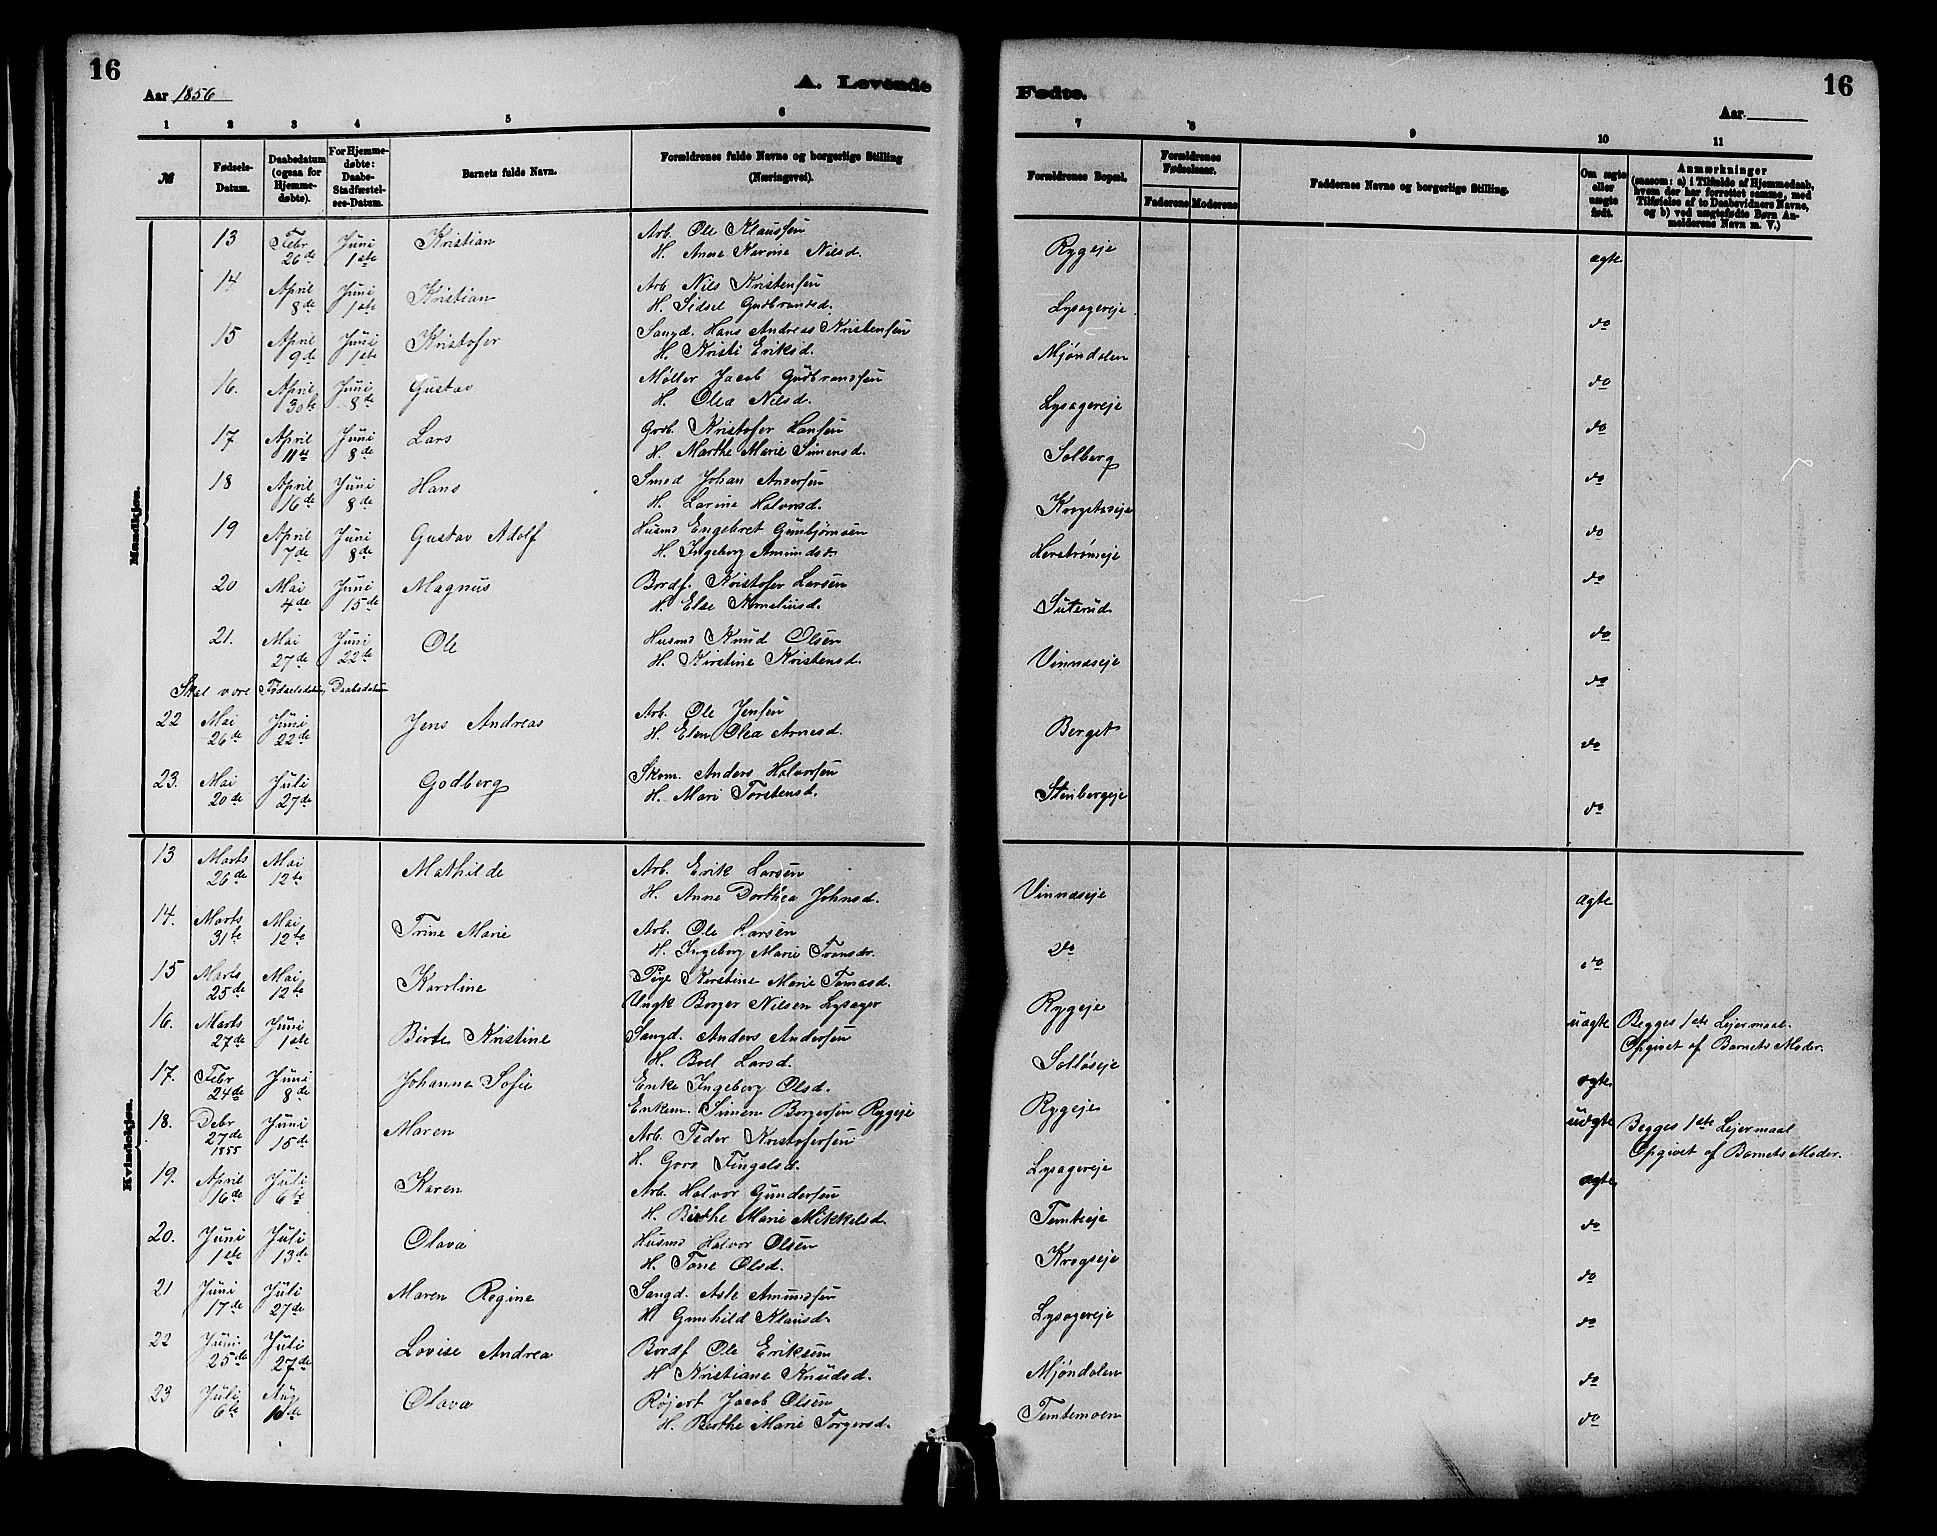 16
Aar 1856
A. Levende
1 2 3 4 5 6
№
Fødsels-Datum.
Daabsdatum (ogsaa for Hjemme-døbte).
For Hjemme-døbte: Daabs-Stadfæstel-ses-Datum.
Barnets fulde Navn.
Forældrenes fulde Navne og borgerlige Stilling (Næringsvei).
Mandkjøn.
13 Febr 26de Juni 1ste Kristian Arb. Ole Klaussen
H. Anne Karine Nilsd.
14 April 8de Juni 1ste Kristian Arb Nils Kristensen
H. Sidsel Gudbrandsd.
15 April 9de Juni 1ste Kristofer Saugd. Hans Andreas Kristensen
H. Kristi Eriksd.
16. April 30te Juni 8de Gustav Møller Jacob Gudbrandsen
H. Olea Nilsd.
17 April 11te Juni 8de Lars Gdb. Kristofer Hansen
H. Marthe Marie Simensd.
18 April 16de Juni 8de Hans Smed Johan Andersen
H. Larine Halvorsd.
19 April 7de Juni 8de Gustav Adolf Husmd Engebret Gunbjørnsen
H. Ingeborg Amundsdr.
20 Mai 4de Juni 15de Magnus Bordf. Kristofer Larsen
H. Else Korneliusd.
21. Mai 27de Juni 22de Ole Husmd Knud Olsen
H. Kirstine Kristensd.
Skal være Fødselsdatum, Daabsdatum
22 Mai 26de Juni 22de Jens Andreas Arb. Ole Jensen
H. Elen Olea Arnesd.
23. Mai 20de Juli 27de Godberg Skom. Anders Halvorsen
H. Mari Torstensd.
Kvindekjøn.
13 Marts 26de Mai 12te Mathilde Arb. Erik Larsen
H. Anne Dorthea Johnsd.
14. Marts 31te Mai 12te Trine Marie Arb. Ole Larsen
H. Ingeborg Marie Fransdr.
15 Marts 25de Mai 12te Karoline Pige Kirstine Marie Tomasd.
Ungk Borger Nilsen Lysager
16. Marts 27de Juni 1ste Birte Kristine Saugd. Anders Andersen
H. Boel Larsd.
17. Febr 24de Juni 8de Johanne Sofie Enke Ingeborg Olsd.
Enkem. Simen Borgersen Rygeje
18. Debr 27de 1855 Juni 15de Maren Arb. Peder Kristofersen
H. Goro Fingalsd.
19. April 16de Juli 6te Karen Arb. Halvor Gundersen
H. Birthe Marie Mikkelsd.
20. Juni 1ste Juli 13de Olava Husmd Halvor Olsen
H. Tone Olsd.
21 Juni 17de Juli 27de Maren Regine Saugd. Asle Amundsen
H Gunhild Klausd.
22 Juni 25de Juli 27de Lovise Andrea Bordf Ole Eriksen
H Kristiane Knudsd.
23 Juli 6te Aug 10de Olava Røjert Jacob Olsen
H. Berthe Marie Torgersd.
16
Fødte.
Aar
7 8 9 10 11
Forældrenes Bopæl.
Forældrenes Fødselsaar.
Faderens Moderens
Faddernes Navne og borgerlige Stilling.
Om ægte eller uægte født.
Anmærkninger
(saasom: a) i Tilfælde af Hjemmedaab, hvem der har forrettet samme, med Tilføielse af to Daabsvidners Navne, og b) ved uægtefødte Børn Anmelderens Navn m. V.)
Rygeje ægte
Lysagereje do
Mjøndalen do
Lysagereje do
Solberg do
Krogstaseje do
Herstrømeje do
Suterud do
Vinnæseje do
Berget do
Stenbergeje do
Vinnæseje ægte
do do
Rygeje uægte Begges 1ste Lejermaal.
Opgivet af Barnets Moder.
Solløseje ægte
Rygeje uægte Begges 1ste Lejermaal
Opgivet af Barnets Moder.
Lysagereje ægte
Temteeje do
Krogseje do
Lysagereje do
Mjøndalen do
Temtemoen do